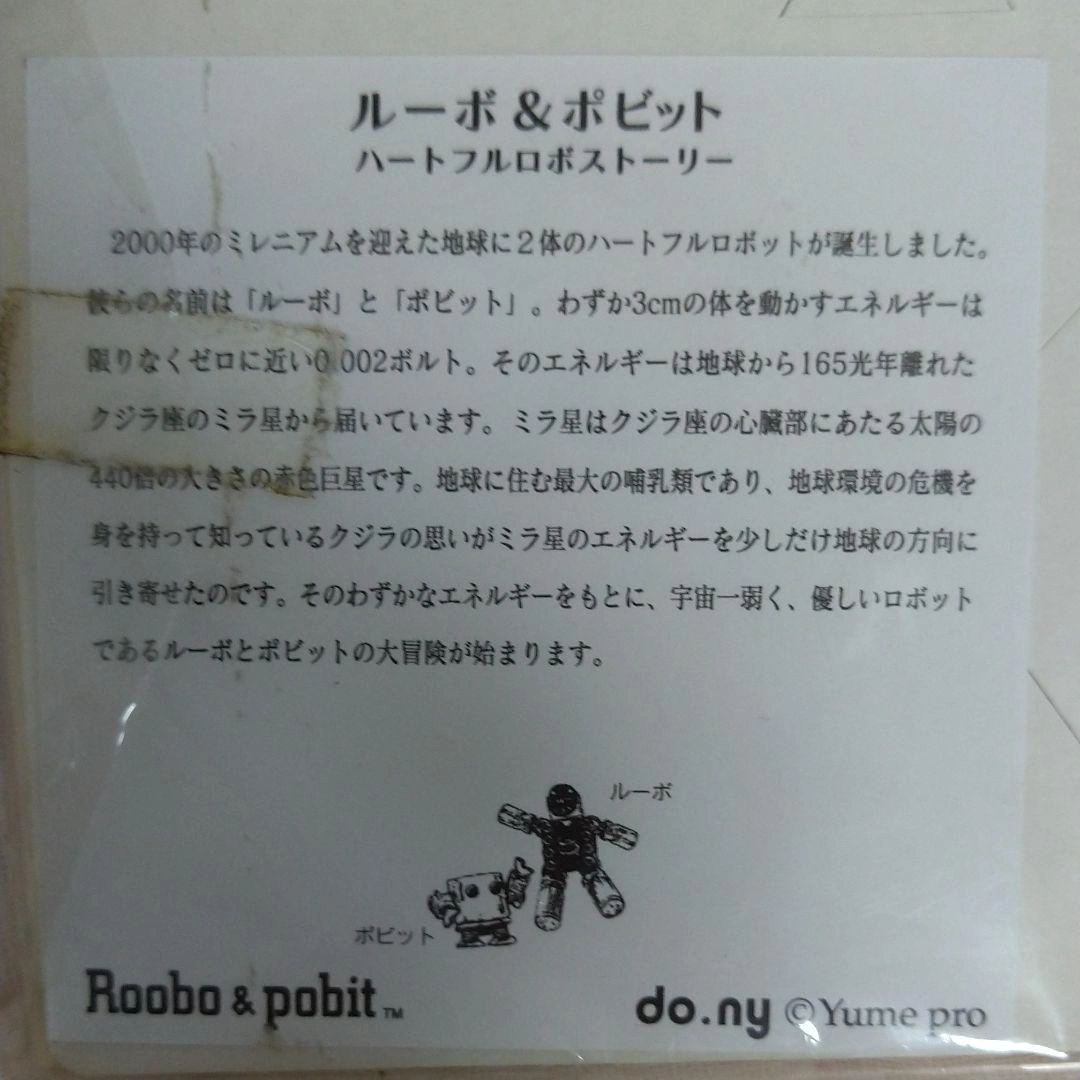 ルーボ&ポビット
ハートフルロボストーリー
2000年のミレニアムを迎えた地球に2体のハートフルロボットが誕生しました。
彼らの名前は「ルーボ」と「ポビット」。わずか3cmの体を動かすエネルギーは
限りなくゼロに近い0.002ボルト。そのエネルギーは地球から165光年離れた
クジラ座のミラ星から届いています。ミラ星はクジラ座の心臓部にあたる太陽の
440倍の大きさの赤色巨星です。地球に住む最大の哺乳類であり、地球環境の危機を
身を持って知っているクジラの思いがミラ星のエネルギーを少しだけ地球の方向に
引き寄せたのです。そのわずかなエネルギーをもとに、宇宙一弱く、優しいロボット
であるルーボとポビットの大冒険が始まります。
ルーボ
ポビット
Roobo & pobit™
do.ny ©Yume pro